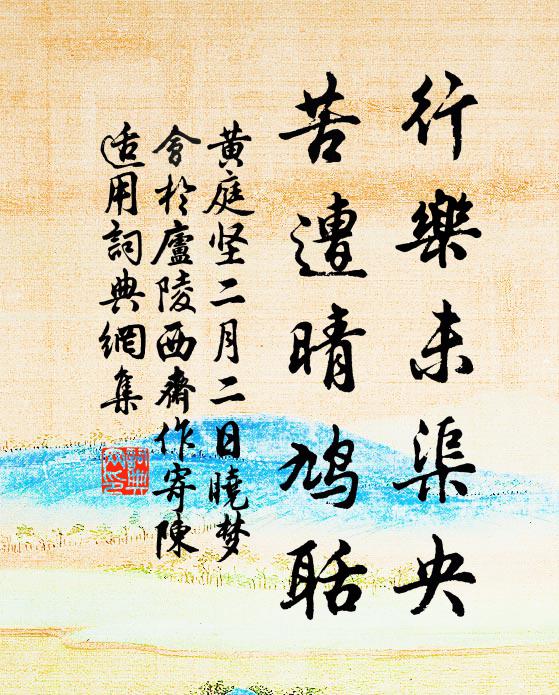 行樂未渠央
苦遭晴鳩聒
黃庭坚二月二日曉梦
會於廬陵西齋作寄陳
适用詞典網集